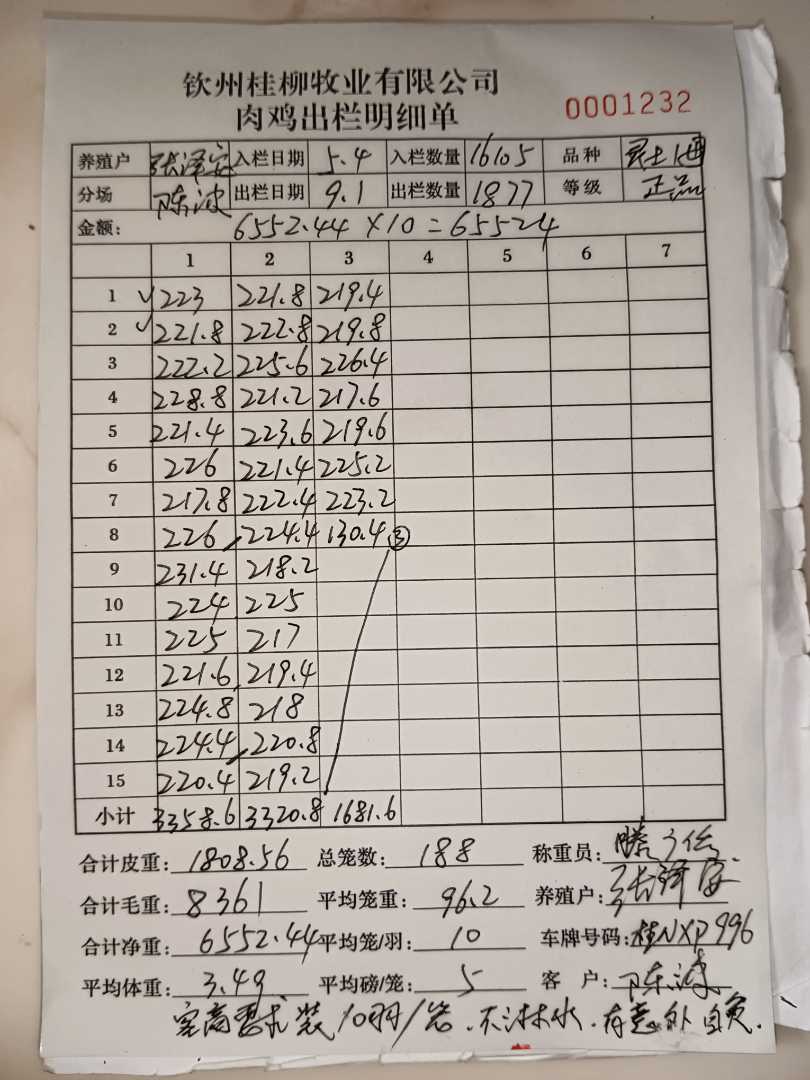 钦州桂柳牧业有限公司
肉鸡出栏明细单 0001232
养殖户 张泽安 入栏日期 5.4 入栏数量 16105 品种
分场 陈波 出栏日期 9.1 出栏数量 1877 等级 正品
金额: 6552.44×10=65524
1 2 3 4 5 6 7
1 223 221.8 219.4
2 221.8 222.8 219.8
3 222.2 225.6 226.4
4 228.8 221.2 217.6
5 221.4 223.6 219.6
6 226 221.4 225.2
7 217.8 222.4 223.2
8 226 224.4 130.4 ③
9 231.4 218.2
10 224 225
11 225 217
12 221.6 219.4
13 224.8 218
14 224.4 220.8
15 220.4 219.2
小计 3358.6 3320.8 1681.6
合计皮重: 1808.56 总笼数: 188 称重员:
合计毛重: 8361 平均笼重: 96.2 养殖户: 张泽安
合计净重: 6552.44 平均笼/羽: 10 车牌号码: 桂NXP996
平均体重: 3.49 平均磅/笼: 5 客户: 陈波
客商要求装10羽/笼.不淋水.有意外自负.